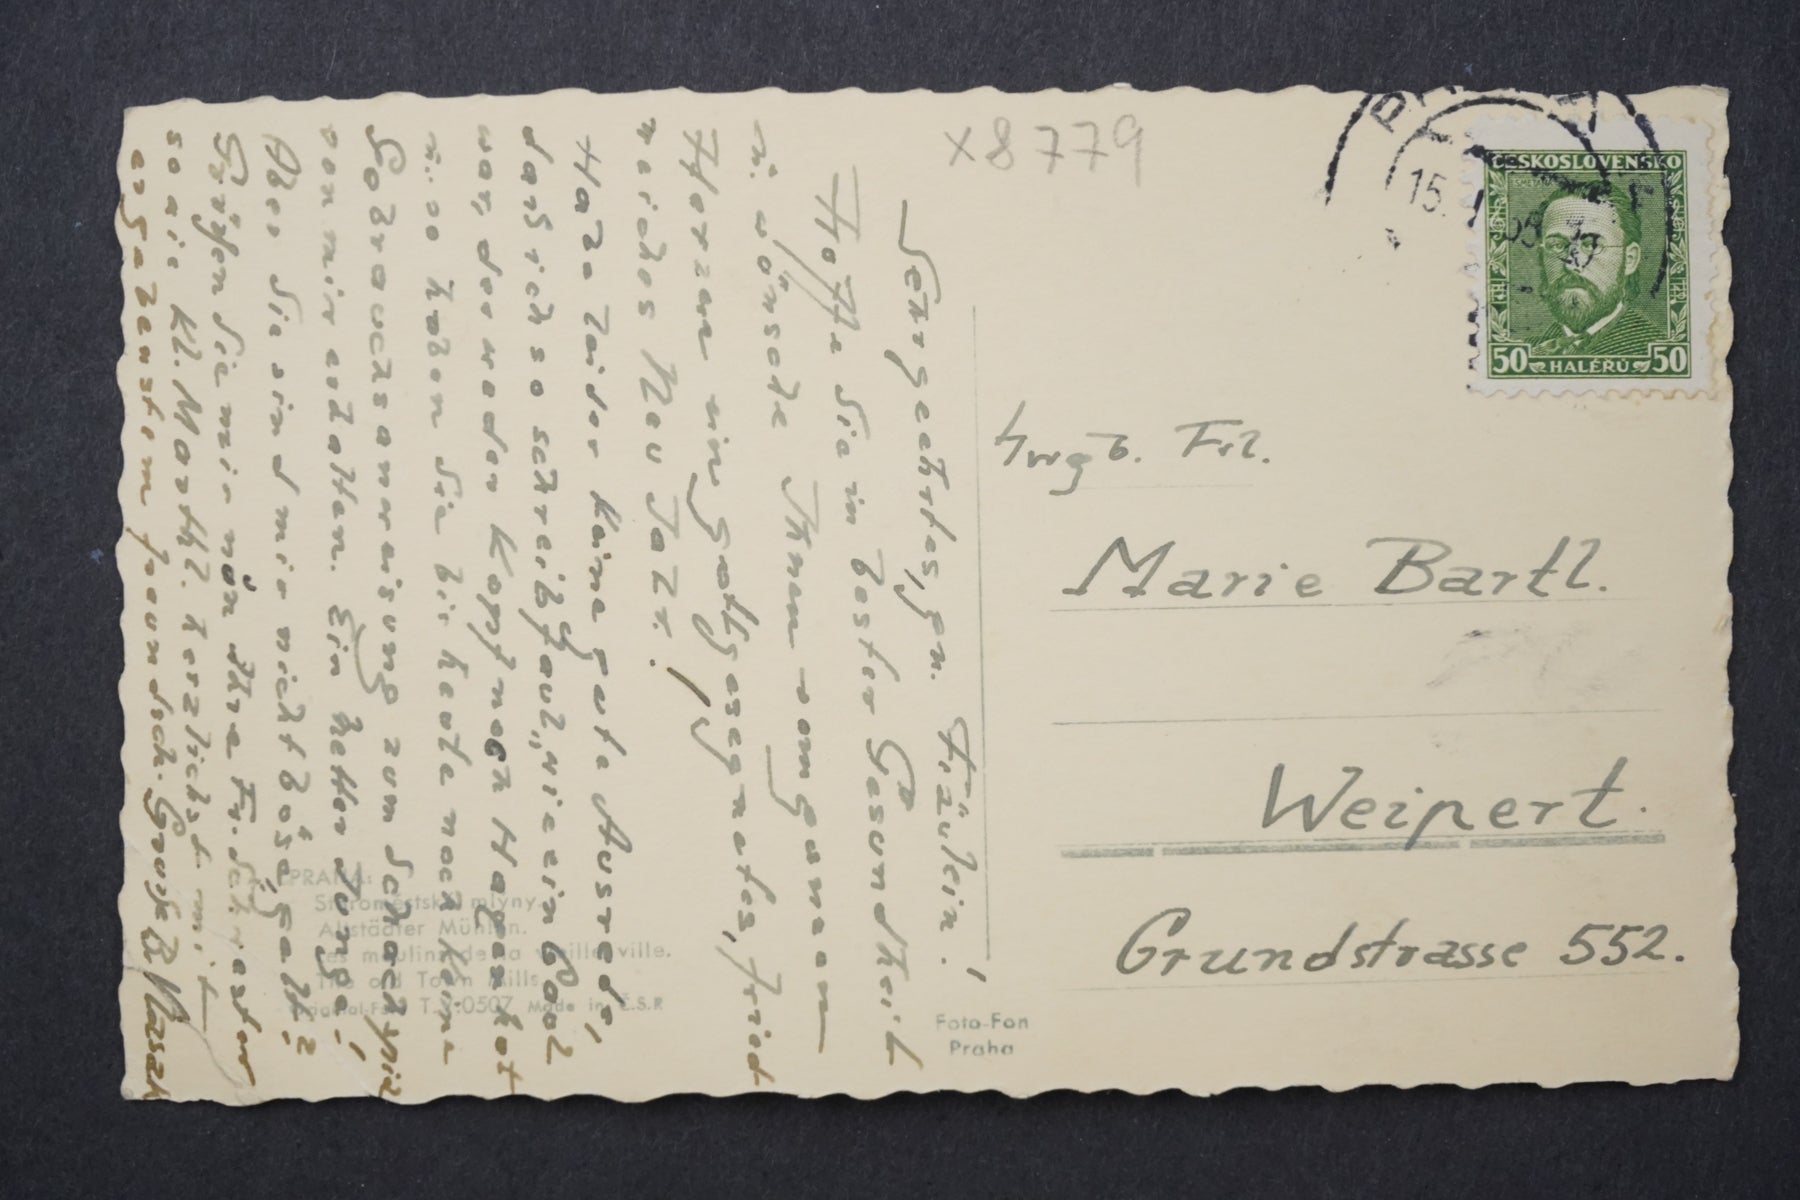 x8779
PRAHA
15. I
ČESKOSLOVENSKO
50 HALÉŘŮ 50
Frl.
Marie Bartl.
Weipert.
Grundstrasse 552.
Sehrgeehrtes, gn. Fräulein!
Hoffe Sie in bester Gesundheit
u. wünsche Ihnen vom ganzen
Herzen ein gottgesegnetes, fried
reiches Neu Jahr.
Habe leider keine gute Ausrede,
daß ich so schreibfaul, wie ein Pool
war, der weder Kopf noch Magen hat
u. so haben Sie bis heute noch keine
Gebrauchsanweisung zum Schachspiel
von mir erhalten. Ein netter Junge!
Aber Sie sind mir nicht böse, gelt?
Grüßen Sie mir nün Ihre Fr. Schwester
sowie Kl. Marthl. herzlichst mit
ergebenstem freundsch. Gruß
PRAHA:
Staroměstské mlýny.
Altstädter Mühlen.
Les moulins de la vieille ville.
The old Town Mills.
Original-Foto T. 0507 Made in Č.S.R
Foto-Fon
Praha